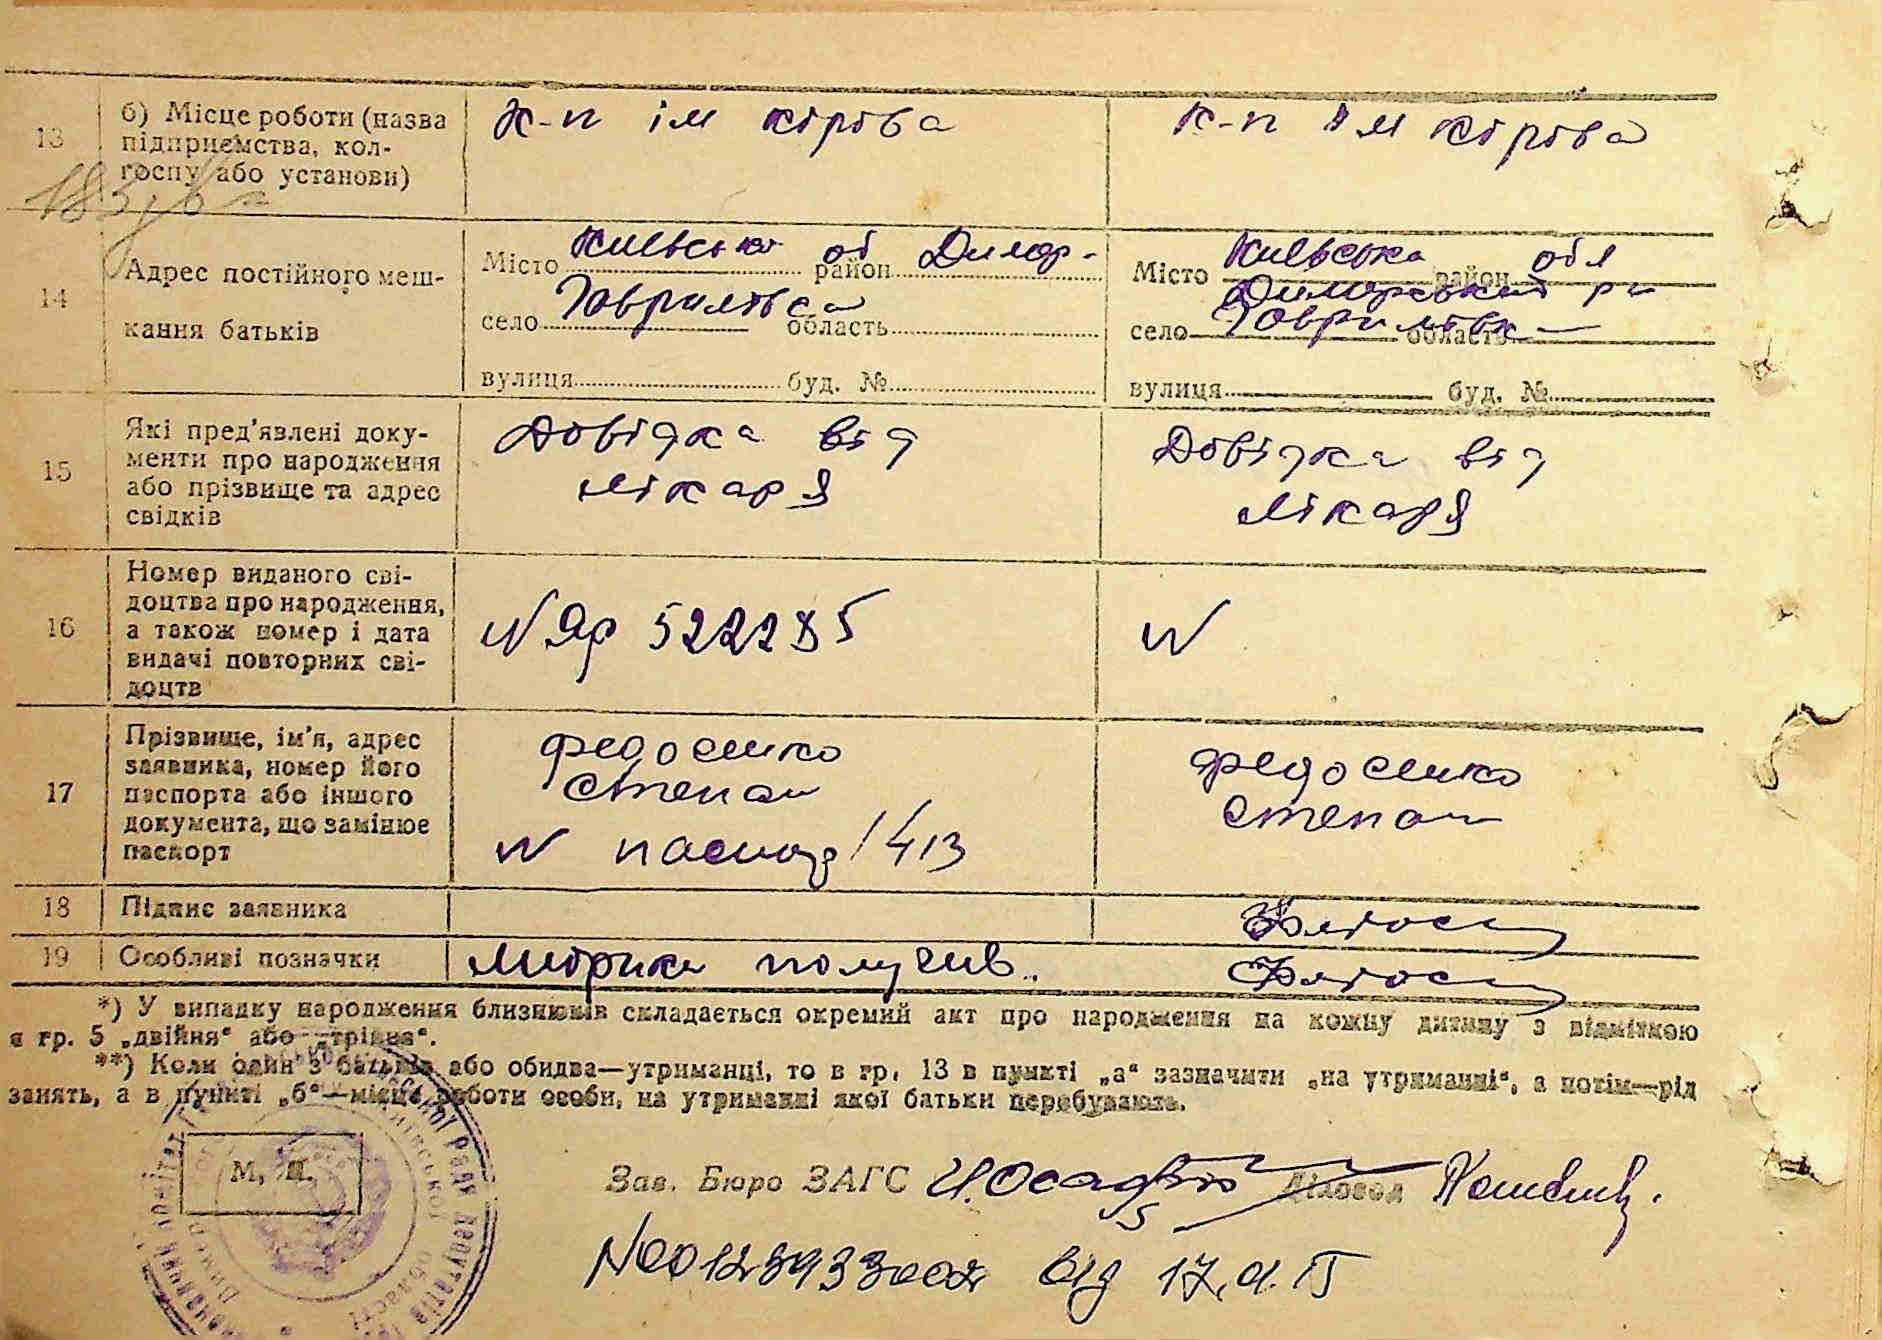 13
б) Місце роботи (назва
підприємства, кол-
госпу або установи)
к-п ім кірова
к-п ім кірова
14
Адрес постійного меш-
кання батьків
Місто Київська район об Димер-
село Гаврилівка область
вулиця буд. №
Місто Київська район обл
Димерський р-н
село Гаврилівка область
вулиця буд. №
15
Які пред'явлені доку-
менти про народження
або прізвище та адрес
свідків
Довідка від
лікаря
Довідка від
лікаря
16
Номер виданого сві-
доцтва про народження,
а також номер і дата
видачі повторних сві-
доцтв
N Яр 522285
N
17
Прізвище, ім'я, адрес
заявника, номер його
паспорта або іншого
документа, що замінює
паспорт
Федосенко
Степан
N паспор 1413
Федосенко
Степан
18
Підпис заявника
19
Особливі позначки
Метрика получив.
*) У випадку народження близнюків складається окремий акт про народження на кожну дитину з відміткою
в гр. 5 „двійня“ або „трійня“.
**) Коли один з батьків або обидва—утриманці, то в гр. 13 в пункті „а“ зазначити „на утриманні“, а потім—рід
занять, а в пункті „б“—місце роботи особи, на утриманні якої батьки перебувають.
М. П.
Зав. Бюро ЗАГС Діловод
від